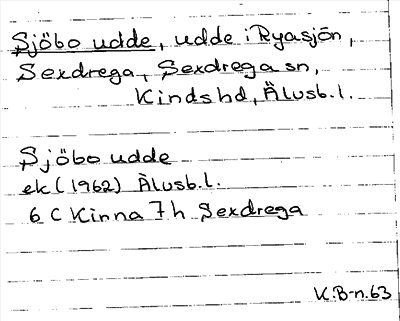 Sjöbo udde, udde i Ryasjön,
Sexdrega, Sexdrega sn,
Kinds hd, Älvsb.l.
Sjöbo udde
ek (1962) Älvsb.l.
6 C Kinna 7 h Sexdrega
K.B-n.63